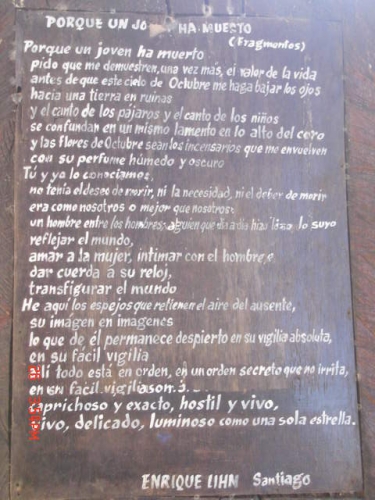 PORQUE UN JO HA MUERTO
(Fragmentos)
Porque un joven ha muerto
pido que me demuestren, una vez más, el valor de la vida
antes de que este cielo de Octubre me haga bajar los ojos
hacia una tierra en ruinas
y el canto de los pájaros y el canto de los niños
se confundan en un mismo lamento en lo alto del coro
y las flores de Octubre sean los incensarios que me envuelven
con su perfume húmedo y oscuro
Tú y yo lo conocíamos,
no tenía el deseo de morir, ni la necesidad, ni el deber de morir
era como nosotros o mejor que nosotros:
un hombre entre los hombres; alguien que día a día hizo lo suyo
reflejar el mundo,
amar a la mujer, intimar con el hombre,
dar cuerda a su reloj,
transfigurar el mundo
He aquí los espejos que retienen el aire del ausente,
su imagen en imagenes
lo que de él permanece despierto en su vigilia absoluta,
en su fácil vigilia
Allí todo está en orden, en un orden secreto que no irrita,
en su facil vigilia
caprichoso y exacto, hostil y vivo,
vivo, delicado, luminoso como una sola estrella.
ENRIQUE LIHN Santiago